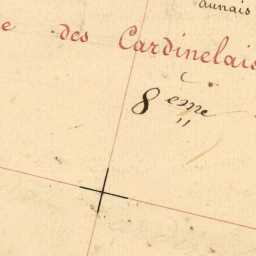 aunais
e des Cardinelais
8 eme "